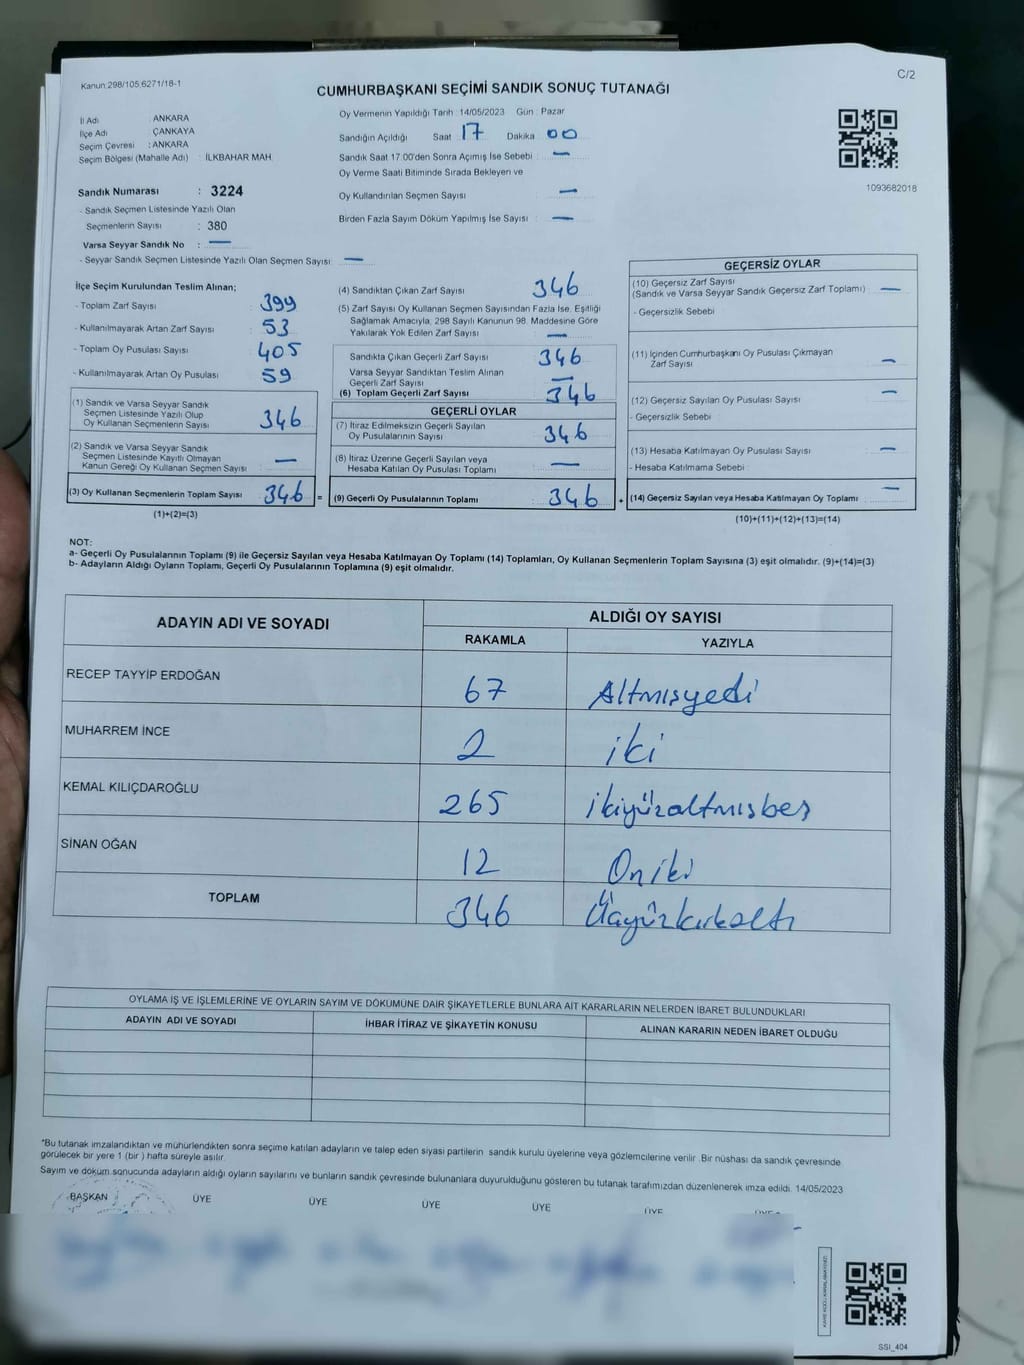 Kanun:298/105;6271/18-1
C/2
CUMHURBAŞKANI SEÇİMİ SANDIK SONUÇ TUTANAĞI
İl Adı : ANKARA
İlçe Adı : ÇANKAYA
Seçim Çevresi : ANKARA
Seçim Bölgesi (Mahalle Adı) : İLKBAHAR MAH.
Sandık Numarası : 3224
- Sandık Seçmen Listesinde Yazılı Olan
Seçmenlerin Sayısı : 380
Varsa Seyyar Sandık No : —
- Seyyar Sandık Seçmen Listesinde Yazılı Olan Seçmen Sayısı: —
Oy Vermenin Yapıldığı Tarih :14/05/2023 Gün : Pazar
Sandığın Açıldığı Saat 17 Dakika 00
Sandık Saat 17:00'den Sonra Açımış İse Sebebi : —
Oy Verme Saati Bitiminde Sırada Bekleyen ve
Oy Kullandırılan Seçmen Sayısı : —
Birden Fazla Sayım Döküm Yapılmış İse Sayısı : —
1093682018
İlçe Seçim Kurulundan Teslim Alınan;
- Toplam Zarf Sayısı : 399
- Kullanılmayarak Artan Zarf Sayısı : 53
- Toplam Oy Pusulası Sayısı : 405
- Kullanılmayarak Artan Oy Pusulası : 59
(1) Sandık ve Varsa Seyyar Sandık
Seçmen Listesinde Yazılı Olup
Oy Kullanan Seçmenlerin Sayısı : 346
(2) Sandık ve Varsa Seyyar Sandık
Seçmen Listesinde Kayıtlı Olmayan
Kanun Gereği Oy Kullanan Seçmen Sayısı : —
(3) Oy Kullanan Seçmenlerin Toplam Sayısı : 346 =
(1)+(2)=(3)
(4) Sandıktan Çıkan Zarf Sayısı : 346
(5) Zarf Sayısı Oy Kullanan Seçmen Sayısından Fazla İse, Eşitliği
Sağlamak Amacıyla; 298 Sayılı Kanunun 98. Maddesine Göre
Yakılarak Yok Edilen Zarf Sayısı : —
Sandıkta Çıkan Geçerli Zarf Sayısı : 346
Varsa Seyyar Sandıktan Teslim Alınan
Geçerli Zarf Sayısı : —
(6) Toplam Geçerli Zarf Sayısı : 346
GEÇERLİ OYLAR
(7) İtiraz Edilmeksizin Geçerli Sayılan
Oy Pusulalarının Sayısı : 346
(8) İtiraz Üzerine Geçerli Sayılan veya
Hesaba Katılan Oy Pusulası Toplamı : —
(9) Geçerli Oy Pusulalarının Toplamı : 346 +
GEÇERSİZ OYLAR
(10) Geçersiz Zarf Sayısı
(Sandık ve Varsa Seyyar Sandık Geçersiz Zarf Toplamı) : —
- Geçersizlik Sebebi :
(11) İçinden Cumhurbaşkanı Oy Pusulası Çıkmayan
Zarf Sayısı : —
(12) Geçersiz Sayılan Oy Pusulası Sayısı : —
- Geçersizlik Sebebi :
(13) Hesaba Katılmayan Oy Pusulası Sayısı : —
- Hesaba Katılmama Sebebi :
(14) Geçersiz Sayılan veya Hesaba Katılmayan Oy Toplamı : —
(10)+(11)+(12)+(13)=(14)
NOT:
a- Geçerli Oy Pusulalarının Toplamı (9) ile Geçersiz Sayılan veya Hesaba Katılmayan Oy Toplamı (14) Toplamları, Oy Kullanan Seçmenlerin Toplam Sayısına (3) eşit olmalıdır. (9)+(14)=(3)
b- Adayların Aldığı Oyların Toplamı, Geçerli Oy Pusulalarının Toplamına (9) eşit olmalıdır.
ADAYIN ADI VE SOYADI
ALDIĞI OY SAYISI
RAKAMLA YAZIYLA
RECEP TAYYİP ERDOĞAN 67 Altmışyedi
MUHARREM İNCE 2 iki
KEMAL KILIÇDAROĞLU 265 ikiyüzaltmışbeş
SİNAN OĞAN 12 Oniki
TOPLAM 346 Üçyüzkırkaltı
OYLAMA İŞ VE İŞLEMLERİNE VE OYLARIN SAYIM VE DÖKÜMÜNE DAİR ŞİKAYETLERLE BUNLARA AİT KARARLARIN NELERDEN İBARET BULUNDUKLARI
ADAYIN ADI VE SOYADI İHBAR İTİRAZ VE ŞİKAYETİN KONUSU ALINAN KARARIN NEDEN İBARET OLDUĞU
*Bu tutanak imzalandıktan ve mühürlendikten sonra seçime katılan adayların ve talep eden siyasi partilerin sandık kurulu üyelerine veya gözlemcilerine verilir. Bir nüshası da sandık çevresinde
görülecek bir yere 1 (bir ) hafta süreyle asılır.
Sayım ve döküm sonucunda adayların aldığı oyların sayılarını ve bunların sandık çevresinde bulunanlara duyurulduğunu gösteren bu tutanak tarafımızdan düzenlenerek imza edildi. 14/05/2023
BAŞKAN ÜYE ÜYE ÜYE ÜYE ÜYE
SSI_404